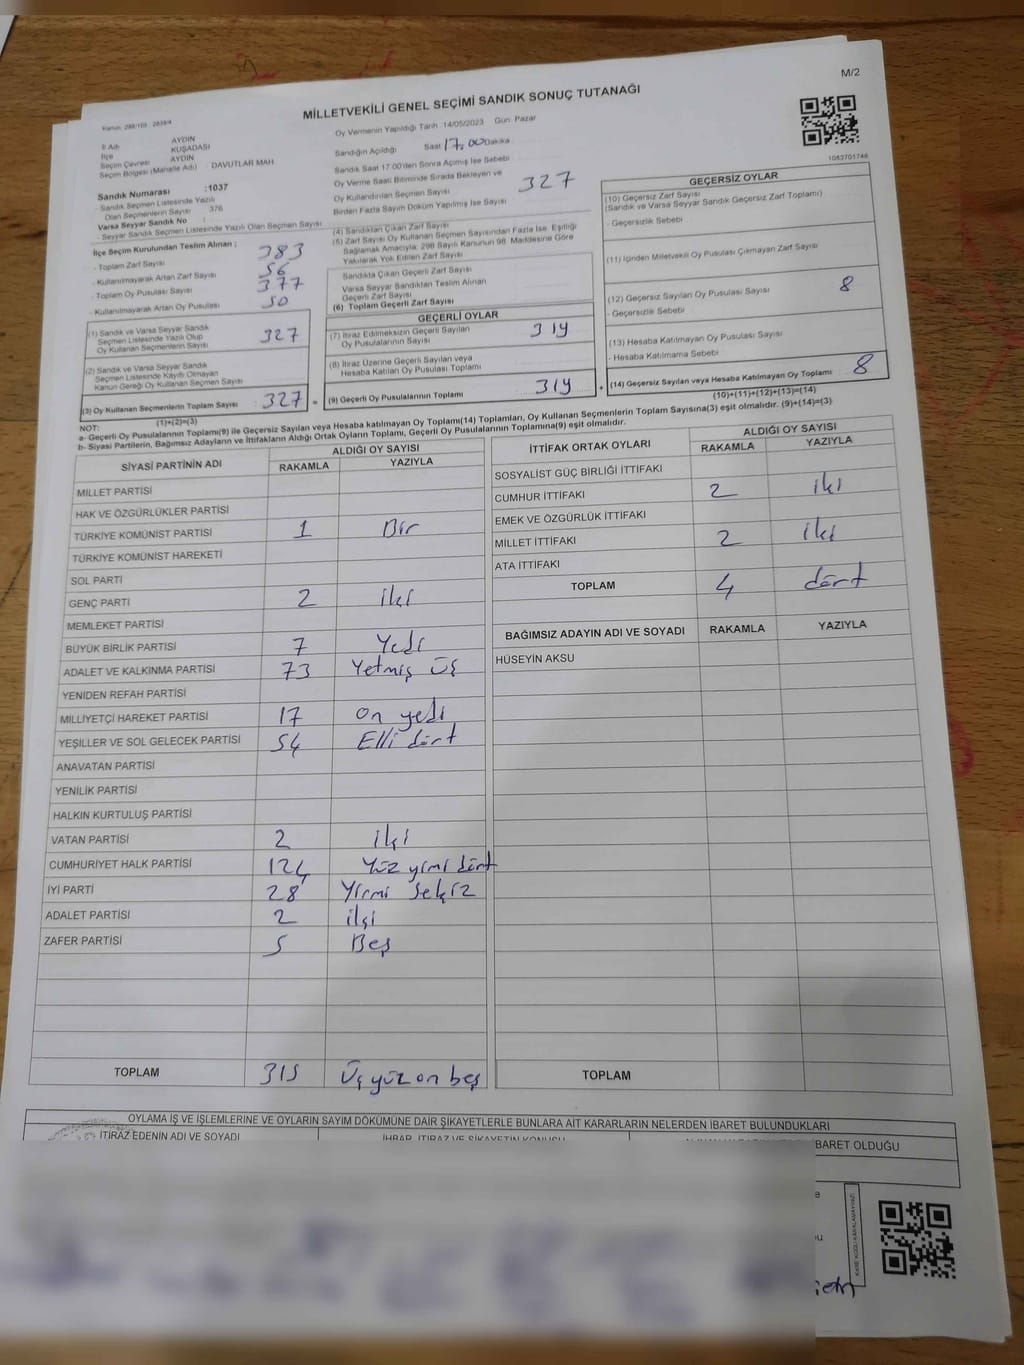 M/2
MİLLETVEKİLİ GENEL SEÇİMİ SANDIK SONUÇ TUTANAĞI
İl Adı AYDIN
İlçe KUŞADASI
Seçim Çevresi AYDIN
Seçim Bölgesi (Mahalle Adı) DAVUTLAR MAH.
Sandık Numarası :1037
- Sandık Seçmen Listesinde Yazılı
Olan Seçmenlerin Sayısı 376
Varsa Seyyar Sandık No :
- Seyyar Sandık Seçmen Listesinde Yazılı Olan Seçmen Sayısı
İlçe Seçim Kurulundan Teslim Alınan ;
- Toplam Zarf Sayısı 383
- Kullanılmayarak Artan Zarf Sayısı 56
- Toplam Oy Pusulası Sayısı 377
- Kullanılmayarak Artan Oy Pusulası 50
(1) Sandık ve Varsa Seyyar Sandık
Seçmen Listesinde Yazılı Olup
Oy Kullanan Seçmenlerin Sayısı 327
(2) Sandık ve Varsa Seyyar Sandık
Seçmen Listesinde Kayıtlı Olmayan
Kanun Gereği Oy Kullanan Seçmen Sayısı
(3) Oy Kullanan Seçmenlerin Toplam Sayısı 327
(1)+(2)=(3)
Oy Vermenin Yapıldığı Tarih 14/05/2023 Gün: Pazar
Sandığın Açıldığı Saat 17.00 Dakika
Sandık Saat 17.00'den Sonra Açılmış İse Sebebi
Oy Verme Saati Bitiminde Sırada Bekleyen ve
Oy Kullandırılan Seçmen Sayısı 327
Birden Fazla Sayım Döküm Yapılmış İse Sayısı
(4) Sandıktan Çıkan Zarf Sayısı
(5) Zarf Sayısı Oy Kullanan Seçmen Sayısından Fazla İse Eşitliği
Sağlamak Amacıyla; 298 Sayılı Kanunun 98. Maddesine Göre
Yakılarak Yok Edilen Zarf Sayısı
Sandıkta Çıkan Geçerli Zarf Sayısı
Varsa Seyyar Sandıktan Teslim Alınan
Geçerli Zarf Sayısı
(6) Toplam Geçerli Zarf Sayısı
GEÇERLİ OYLAR
(7) İtiraz Edilmeksizin Geçerli Sayılan
Oy Pusulalarının Sayısı 319
(8) İtiraz Üzerine Geçerli Sayılan veya
Hesaba Katılan Oy Pusulası Toplamı
= (9) Geçerli Oy Pusulalarının Toplamı 319
1063701746
GEÇERSİZ OYLAR
(10) Geçersiz Zarf Sayısı
(Sandık ve Varsa Seyyar Sandık Geçersiz Zarf Toplamı)
- Geçersizlik Sebebi
(11) İçinden Milletvekili Oy Pusulası Çıkmayan Zarf Sayısı
(12) Geçersiz Sayılan Oy Pusulası Sayısı 8
- Geçersizlik Sebebi
(13) Hesaba Katılmayan Oy Pusulası Sayısı
- Hesaba Katılmama Sebebi
+ (14) Geçersiz Sayılan veya Hesaba Katılmayan Oy Toplamı 8
(10)+(11)+(12)+(13)=(14)
NOT:
a- Geçerli Oy Pusulalarının Toplamı(9) ile Geçersiz Sayılan veya Hesaba katılmayan Oy Toplamı(14) Toplamları, Oy Kullanan Seçmenlerin Toplam Sayısına(3) eşit olmalıdır. (9)+(14)=(3)
b- Siyasi Partilerin, Bağımsız Adayların ve İttifakların Aldığı Ortak Oyların Toplamı, Geçerli Oy Pusulalarının Toplamına(9) eşit olmalıdır.
SİYASİ PARTİNİN ADI ALDIĞI OY SAYISI
RAKAMLA YAZIYLA
MİLLET PARTİSİ
HAK VE ÖZGÜRLÜKLER PARTİSİ
TÜRKİYE KOMÜNİST PARTİSİ 1 Bir
TÜRKİYE KOMÜNİST HAREKETİ
SOL PARTİ
GENÇ PARTİ 2 iki
MEMLEKET PARTİSİ
BÜYÜK BİRLİK PARTİSİ 7 Yedi
ADALET VE KALKINMA PARTİSİ 73 Yetmiş üç
YENİDEN REFAH PARTİSİ
MİLLİYETÇİ HAREKET PARTİSİ 17 on yedi
YEŞİLLER VE SOL GELECEK PARTİSİ 54 Elli dört
ANAVATAN PARTİSİ
YENİLİK PARTİSİ
HALKIN KURTULUŞ PARTİSİ
VATAN PARTİSİ 2 iki
CUMHURİYET HALK PARTİSİ 124 Yüz yirmi dört
İYİ PARTİ 28 Yirmi sekiz
ADALET PARTİSİ 2 iki
ZAFER PARTİSİ 5 Beş
TOPLAM 315 Üç yüz on beş
İTTİFAK ORTAK OYLARI ALDIĞI OY SAYISI
RAKAMLA YAZIYLA
SOSYALİST GÜÇ BİRLİĞİ İTTİFAKI
CUMHUR İTTİFAKI 2 iki
EMEK VE ÖZGÜRLÜK İTTİFAKI
MİLLET İTTİFAKI 2 iki
ATA İTTİFAKI
TOPLAM 4 dört
BAĞIMSIZ ADAYIN ADI VE SOYADI RAKAMLA YAZIYLA
HÜSEYİN AKSU
TOPLAM
OYLAMA İŞ VE İŞLEMLERİNE VE OYLARIN SAYIM DÖKÜMÜNE DAİR ŞİKAYETLERLE BUNLARA AİT KARARLARIN NELERDEN İBARET BULUNDUKLARI
İTİRAZ EDENİN ADI VE SOYADI İHBAR, İTİRAZ VE ŞİKAYETİN KONUSU İBARET OLDUĞU